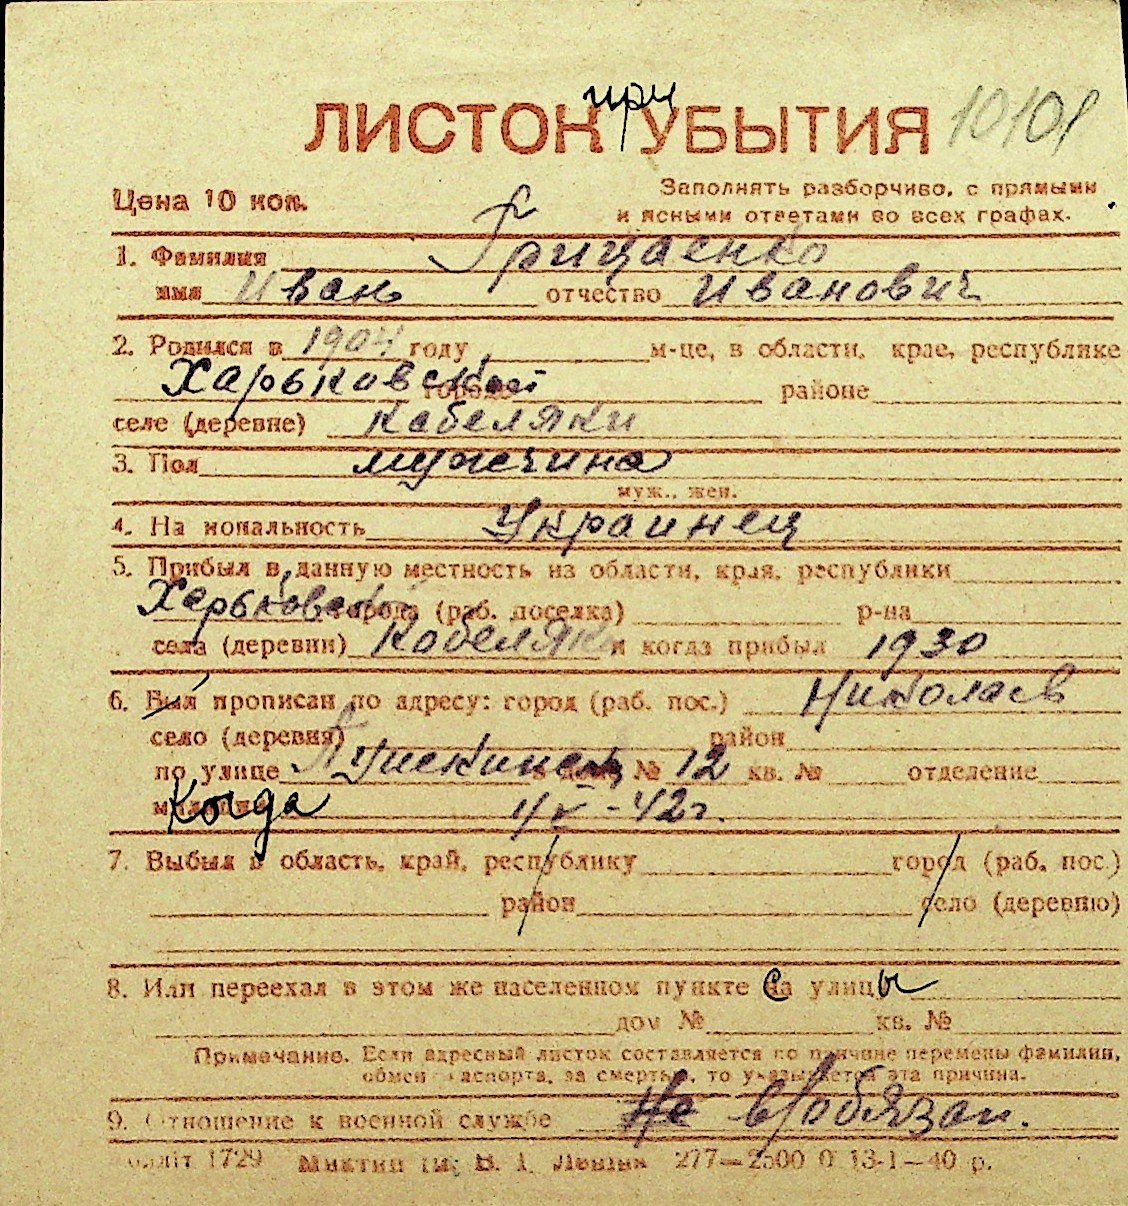 при
ЛИСТОК УБЫТИЯ 10101
Цена 10 коп. Заполнять разборчиво, с прямыми
и ясными ответами во всех графах.
1. Фамилия Грицаенко
имя Иван отчество Иванович
2. Родился в 1904 году, м-це, в области, крае, республике
Харьковской городе районе
селе (деревне) Кабеляки
3. Пол мужчина
муж., жен.
4. Национальность Украинец
5. Прибыл в данную местность из области, края, республики
Харьковской города (раб. поселка) р-на
села (деревни) Кобеляки и когда прибыл 1930
6. Был прописан по адресу: город (раб. пос.) Николаев
село (деревня) район
по улице дом № 12 кв. № отделение
милиции Когда 1/V-42г.
7. Выбыл в область, край, республику город (раб. пос.)
район село (деревню)
8. Или переехал в этом же населенном пункте са улицы
дом № кв. №
Примечание. Если адресный листок составляется по причине перемены фамилии,
обмен паспорта, за смертью, то указывается эта причина.
9. Отношение к военной службе Не в/обязан.
1729 277—2500 0 13-1—40 р.